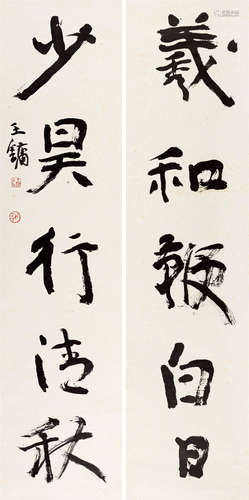 羲和鞭白日
少昊行清秋
王镛